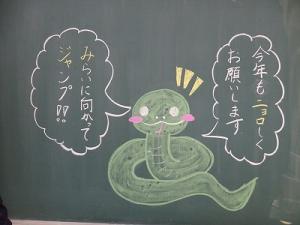 今年もニョロしく
お願いします
みらいに向かって
ジャンプ!!